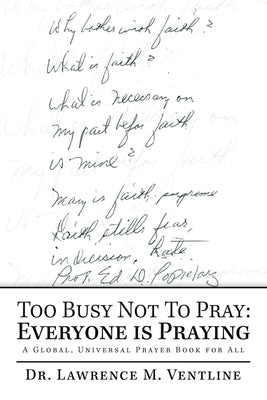 Why bother with faith?
What is faith?
What is necessary on
my part before faith
is mine?
Mary is faith supreme
Faith stills fear,
indecision, hate.
Prof. Ed D. Popielarz
TOO BUSY NOT TO PRAY:
EVERYONE IS PRAYING
A GLOBAL, UNIVERSAL PRAYER BOOK FOR ALL
DR. LAWRENCE M. VENTLINE